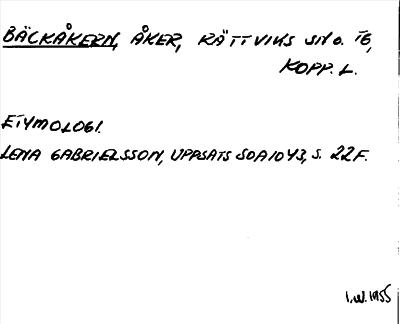 BÄCKÅKERN, ÅKER, RÄTTVIKS SN O. TG,
KOPP. L.
ETYMOLOGI.
LENA GABRIELSSON, UPPSATS SOA 1043, S. 22 F.
I.W. 1955